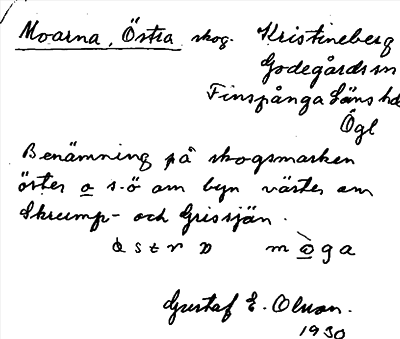 Moarna, Östra skog. Kristineberg
Godegårds sn
Finspånga Läns hd
Ögl
Benämning på skogsmarken
öster o s.ö om byn väster om
Skrump- och Grissjön.
Gustaf E. Olson.
1930